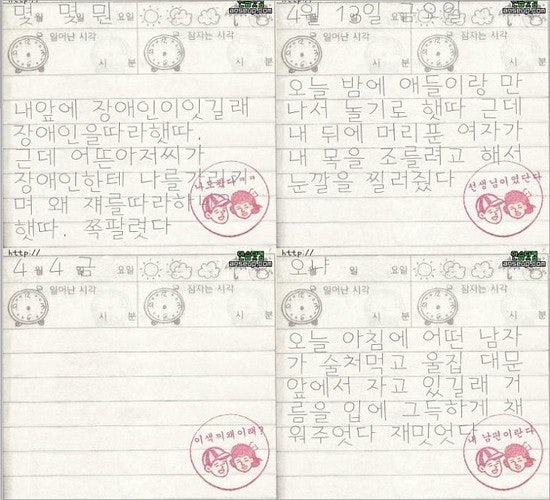 몇월 몇일 뭔요일
일어난 시각 잠자는 시각
시 분 시 분
내앞에 장애인이잇길래
장애인을따라햇따.
근데 어뜬아저씨가
장애인한테 나를가리
며 왜 쟤를따라하
햇따. 쪽팔렷다
나도봤다ㅋㅋ
aoseup.com
4월 13일 금요일
일어난 시각 잠자는 시각
시 분 시 분
오늘 밤에 애들이랑 만
나서 놀기로 햇따 근데
내 뒤에 머리푼 여자가
내 목을 조를려고 해서
눈깔을 찔러줬다
선생님이었단다
aoseup.com
http://
4월 4일 금요일
일어난 시각 잠자는 시각
시 분 시 분
이색끼왜이래?
aoseup.com
http://
일어난 시각 잠자는 시각
시 분 시 분
오늘 아침에 어떤 남자
가 술처먹고 울집 대문
앞에서 자고 있길래 거
름을 입에 그득하게 채
워주엇다 재밋엇다
내 남편이란다
aoseup.com